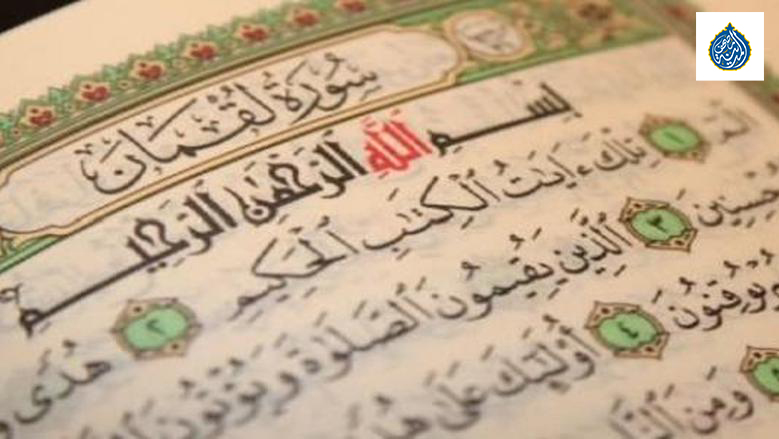 سُورَةُ لُقْمَانَ
بِسْمِ ٱللَّهِ ٱلرَّحْمَٰنِ ٱلرَّحِيمِ
الٓمٓ ١ تِلْكَ ءَايَٰتُ ٱلْكِتَٰبِ ٱلْحَكِيمِ ٢ هُدًى
ٱلَّذِينَ يُقِيمُونَ ٱلصَّلَوٰةَ وَيُؤْتُونَ
يُوقِنُونَ ٤ أُو۟لَٰٓئِكَ عَلَىٰ
وَمِنَ